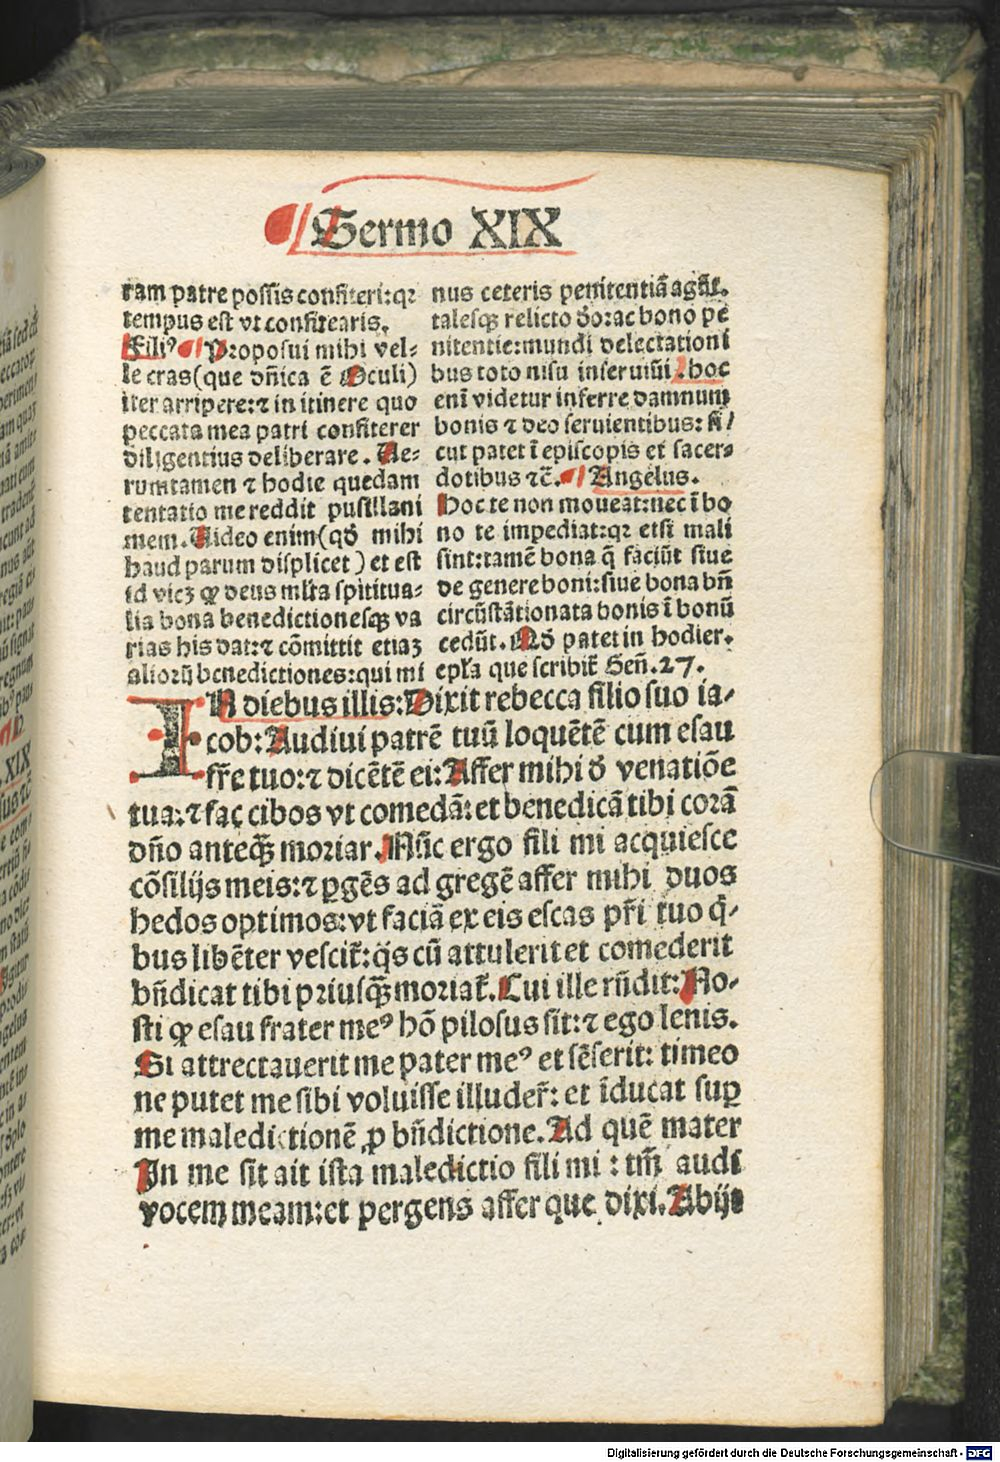 Sermo XIX
ram patre possis confiteri:qꝛ
tempus est vt confitearis.
Filiꝰ ¶ Proposui mihi vel⸗
le cras(que dñica ē Oculi)
iter arripere:⁊ in itinere quo
peccata mea patri confiterer
diligentius deliberare. Ue⸗
rumtamen ⁊ hodie quedam
tentatio me reddit pusillani
mem. Uideo enim(qđ mihi
haud parum displicet) et est
id vicꝫ ꝙ deus mĺta spiritua⸗
lia bona benedictionesqꝫ va
rias his dat:⁊ cōmittit etiaꝫ
alioꝝ benedictiones:qui mi
nus ceteris penitentiā agāt.
talesqꝫ relicto đo:ac bono pe
nitentie:mundi delectationi
bus toto nisu inseruiūt. hoc
enī videtur inferre damnum
bonis ⁊ deo seruientibus: si/
cut patet ī episcopis et sacer⸗
dotibus ⁊c̄. ¶ Angelus.
Hoc te non moueat:nec ī bo
no te impediat:qꝛ etsi mali
sint:tamē bona q̄ faciūt siue
de genere boni:siue bona bñ
circūstātionata bonis ī bonū
cedūt. Qđ patet in hodier⸗
epĺa que scribit̃ Geñ.27.
IN diebus illis:Dixit rebecca filio suo ia⸗
cob: Audiui patrē tuū loquētē cum esau
fr̄e tuo:⁊ dicētē ei: Affer mihi đ venatiōe
tua:⁊ fac cibos vt comedā:et benedicā tibi corā
dño anteqꝫ̄ moriar. Nūc ergo fili mi acquiesce
cōsilijs meis:⁊ ꝑgēs ad gregē affer mihi duos
hedos optimos:vt faciā ex eis escas pr̄i tuo q̇⸗
bus libēter vescit̃:q̇s cū attulerit et comederit
bñdicat tibi priusqꝫ̄ moriat̃. Cui ille rñdit: No⸗
sti ꝙ esau frater meꝰ hō pilosus sit:⁊ ego lenis.
Si attrectauerit me pater meꝰ et sēserit: timeo
ne putet me sibi voluisse illuder̄: et īducat suꝑ
me maledictionē ꝓ bñdictione. Ad quē mater
In me sit ait ista maledictio fili mi : tm̄ audi
vocem meam:et pergens affer que dixi. Abijt
Digitalisierung gefördert durch die Deutsche Forschungsgemeinschaft - DFG